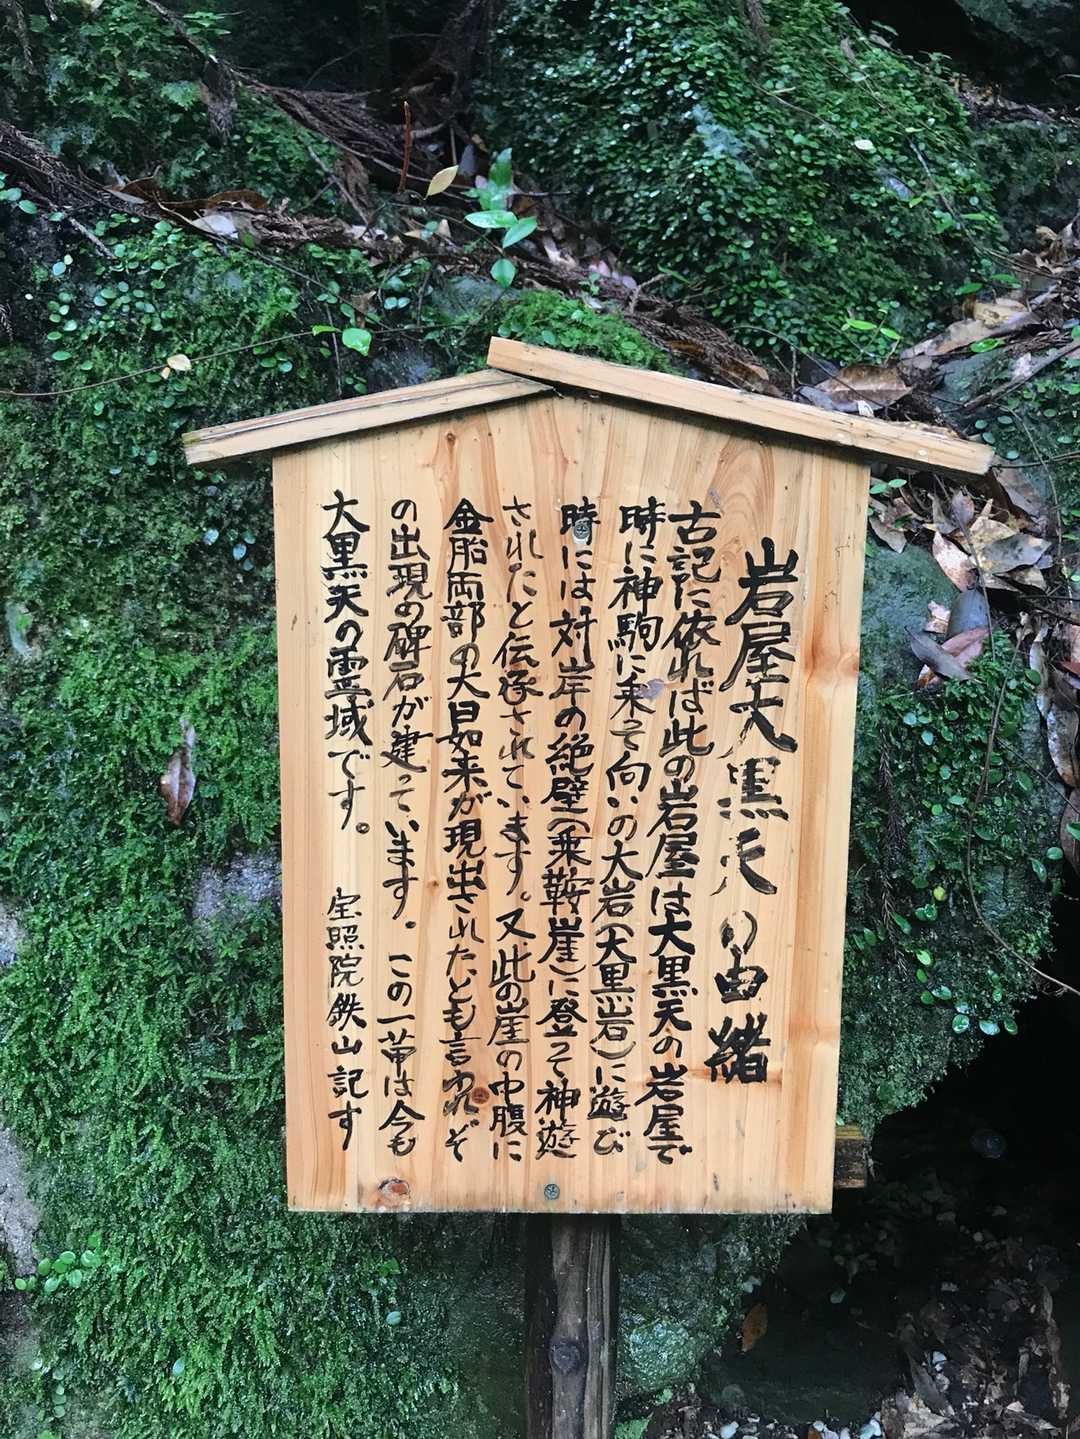 岩屋大黒天の由緒
古記に依れば此の岩屋は大黒天の岩屋で
時に神駒に乗って向いの大岩(大黒岩)に遊び
時には対岸の絶壁(乗鞍崖)に登って神遊
されたと伝承されています。又此の崖の中腹に
金胎両部の大日如来が現出されたとも言われ、ぞ
の出現の碑石が建っています。この一帯は今も
大黒天の霊域です。
宝照院鉄山記す